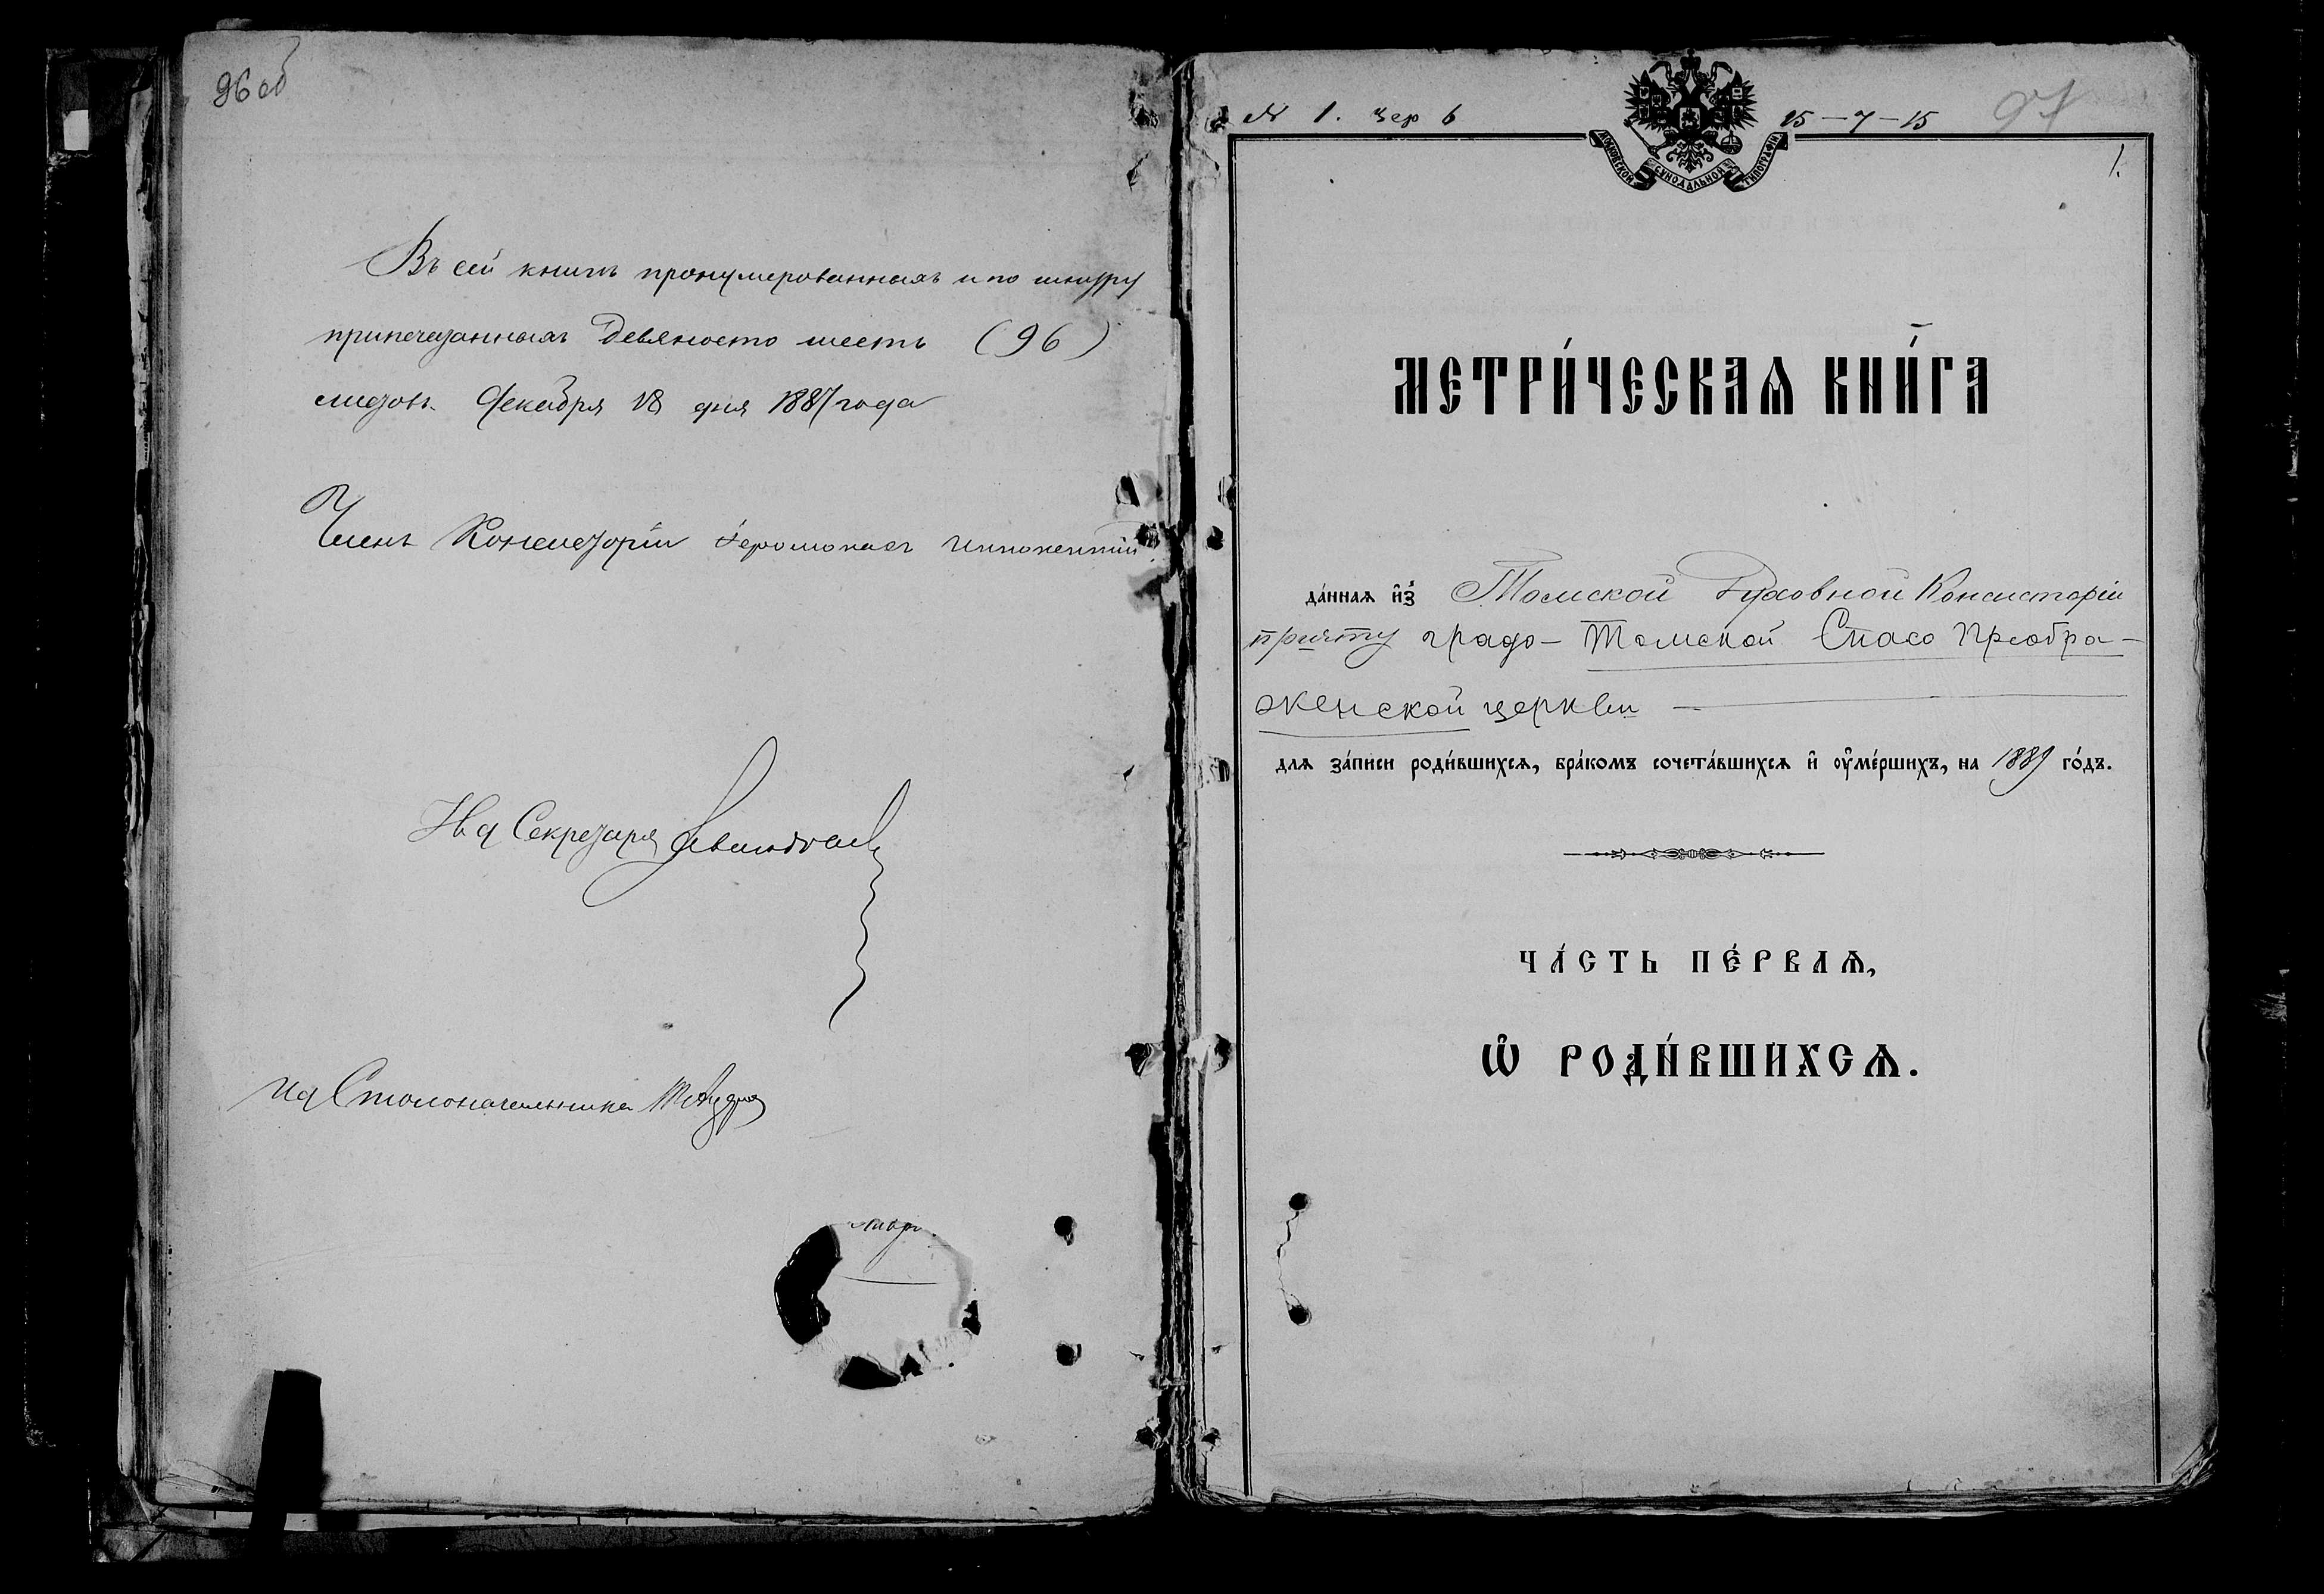 96 об
Въ сей книгѣ пронумерованныхъ и по шнуру
припечатанныхъ девяносто шесть (96)
листовъ. Декабря 18 дня 1887 года
Членъ Консисторіи Іеромонахъ Иннокентій
И. д. Секретаря
И д Столоначальника
№ 1. чер 6
25–7–15
97
1.
МОСКОВСКОЙ СѴНОДАЛЬНОЙ ТИПОГРАФІИ
МЕТРИ́ЧЕСКАѦ КНИ́ГА
да́ннаѧ и҆з̾ Томской Духовной Консисторіи
причту градо-Томской Спасо Преобра-
женской церкви
длѧ за́писи роди́вшихсѧ, бра́комъ сочета́вшихсѧ и҆ ᲂу҆ме́ршихъ, на 1889 го́дъ.
ЧА́СТЬ ПЕ́РВАѦ,
Ѽ РОДИ́ВШИХСѦ.